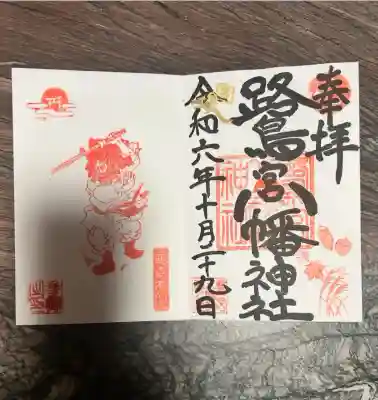 奉拝
鷺宮八幡神社
令和六年十月二十九日